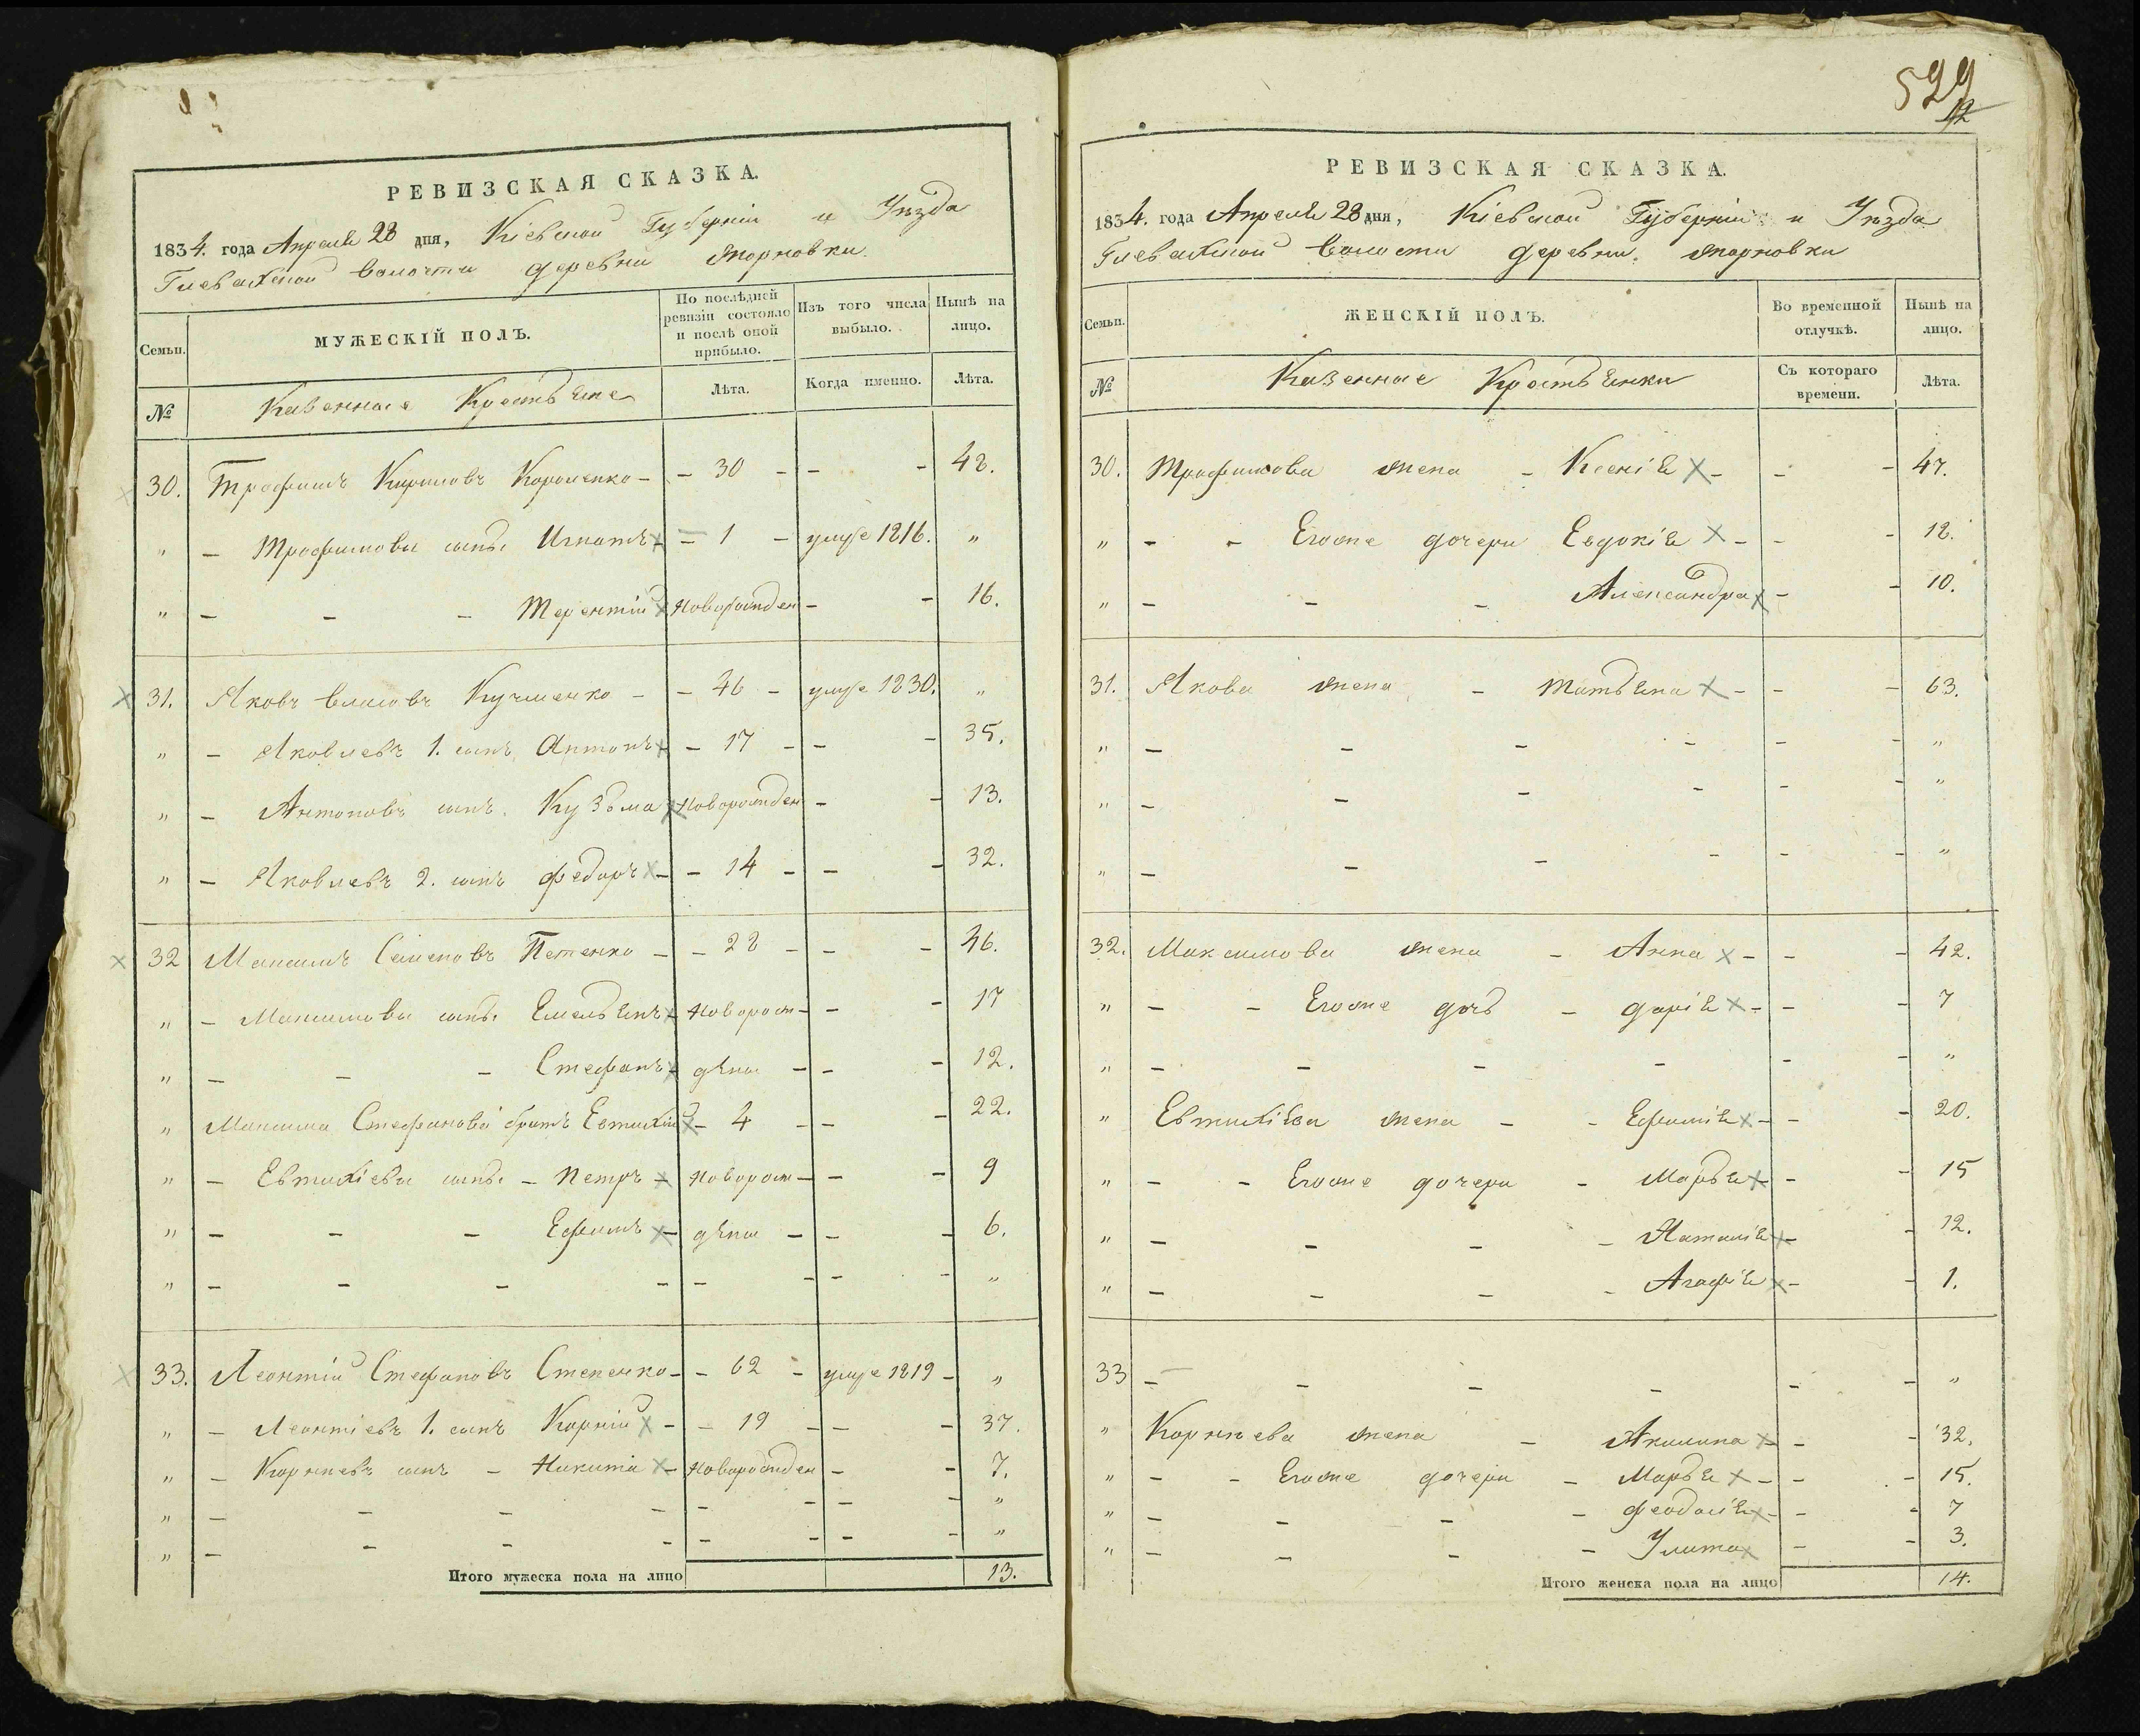 РЕВИЗСКАЯ СКАЗКА.
1834. года Апреля 28 дня, Кіевской Губерніи и Уѣзда
Глевахской волости деревни Жорновки.
Семьи. МУЖЕСКІЙ ПОЛЪ. По послѣдней ревизіи состояло и послѣ оной прибыло. Изъ того числа выбыло. Нынѣ на лицо.
№ Казенные Крестьяне Лѣта. Когда именно. Лѣта.
30. Трофимъ Кириловъ Короленко - - 30 - - - 48.
" - Трофимовы сынь. Игнатъ - 1 - умре 1816. "
" - - - Терентій Новорожден - - 16.
31. Яковъ Власовъ Кучменко - - 46 - умре 1830. "
" - Яковлевъ 1. сынъ Антонъ - 17 - - - 35.
" - Антоновъ сынъ. Кузьма Новорожден - - 13.
" - Яковлевъ 2. сынъ Федоръ - - 14 - - - 32.
32 Максимъ Семеновъ Петенко - - 28 - - - 46.
" - Максимовы сынь. Емельянъ Новорож - - - 17
" - - - Стефанъ дены - - - 12.
" Максима Стефановъ братъ Евтихій - 4 - - - 22.
" - Евтихіевы сынь. - Петръ Новорож - - - 9
" - - - Ефимъ - дены - - - 6.
" - - - - - - - - "
33. Леонтій Стефановъ Стененко - - 62 - умре 1819 - "
" - Леонтіевъ 1. сынъ Корній - - 19 - - - 37.
" - Корнѣевъ сынъ - Никита - Новорожден - - 7.
" - - - - - - - - "
" - - - - - - - - "
Итого мужеска пола на лицо 13.
529
12
РЕВИЗСКАЯ СКАЗКА.
1834. года Апреля 28 дня, Кіевской Губерніи и Уѣзда
Глевахской волости деревни Жорновки
Семьи. ЖЕНСКІЙ ПОЛЪ. Во временной отлучкѣ. Нынѣ на лицо.
№ Казенные Крестьянки Съ котораго времени. Лѣта.
30. Трофимова жена - Ксенія - - - 47.
" - - Егоже дочери Евдокія - - - 18.
" - - - Александра - - 10.
31. Якова жена - Татьяна - - - 63.
" - - - - - - "
" - - - - - - "
" - - - - - - "
32. Максимова жена - Анна - - - 42.
" - - Егоже дочь - Дарія - - - 7
" - - - - - - "
" Евтихіева жена - - Ефимія - - - 20.
" - - Егоже дочери - Марья - - 15
" - - - - Наталія - - 12.
" - - - - Агафія - - 1.
33 - - - - - - "
" Корнѣева жена - Акилина - - - 32.
" - - Егоже дочери - Марья - - - 15.
" - - - - Феодосія - - - 7
" - - - - Улита - - 3.
Итого женска пола на лицо 14.